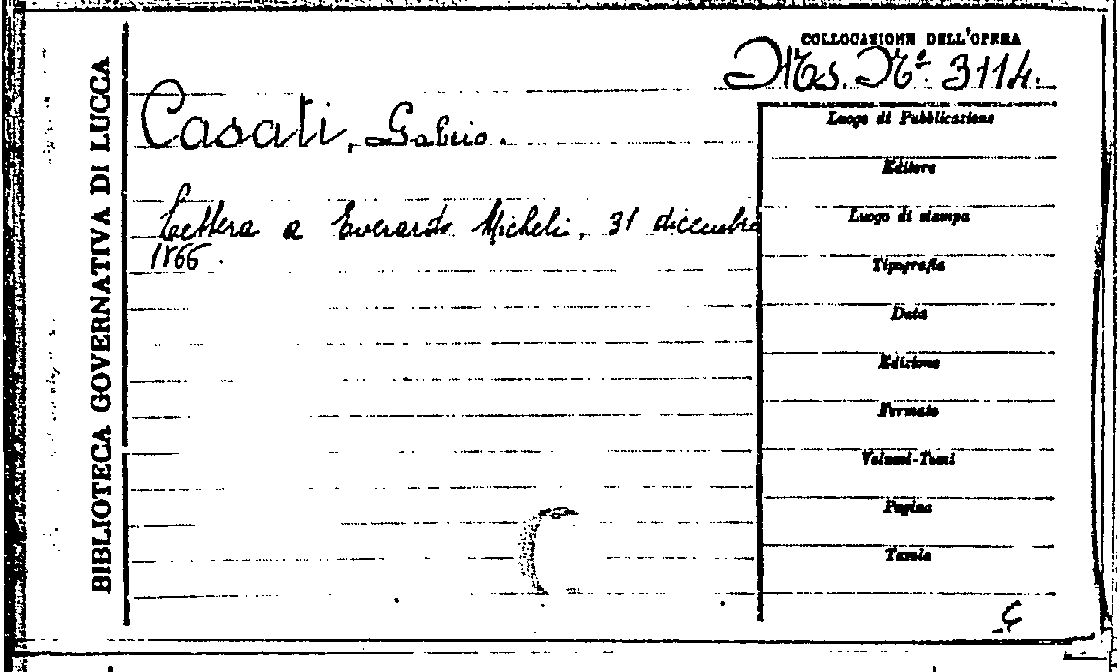 BIBLIOTECA GOVERNATIVA DI LUCCA
COLLOCAZIONE DELL'OPERA
Ms. Nº. 3114.
Casati, Gabrio.
Lettera a Everardo Micheli, 31 dicembre
1866.
Luogo di Pubblicazione
Editore
Luogo di stampa
Tipografia
Data
Edizione
Formato
Volumi-Tomi
Pagine
Tavole